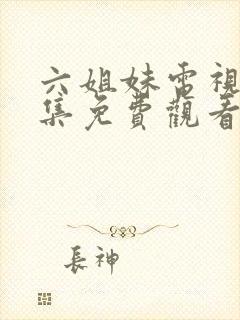 六姐妹電視
集免費觀看
長神